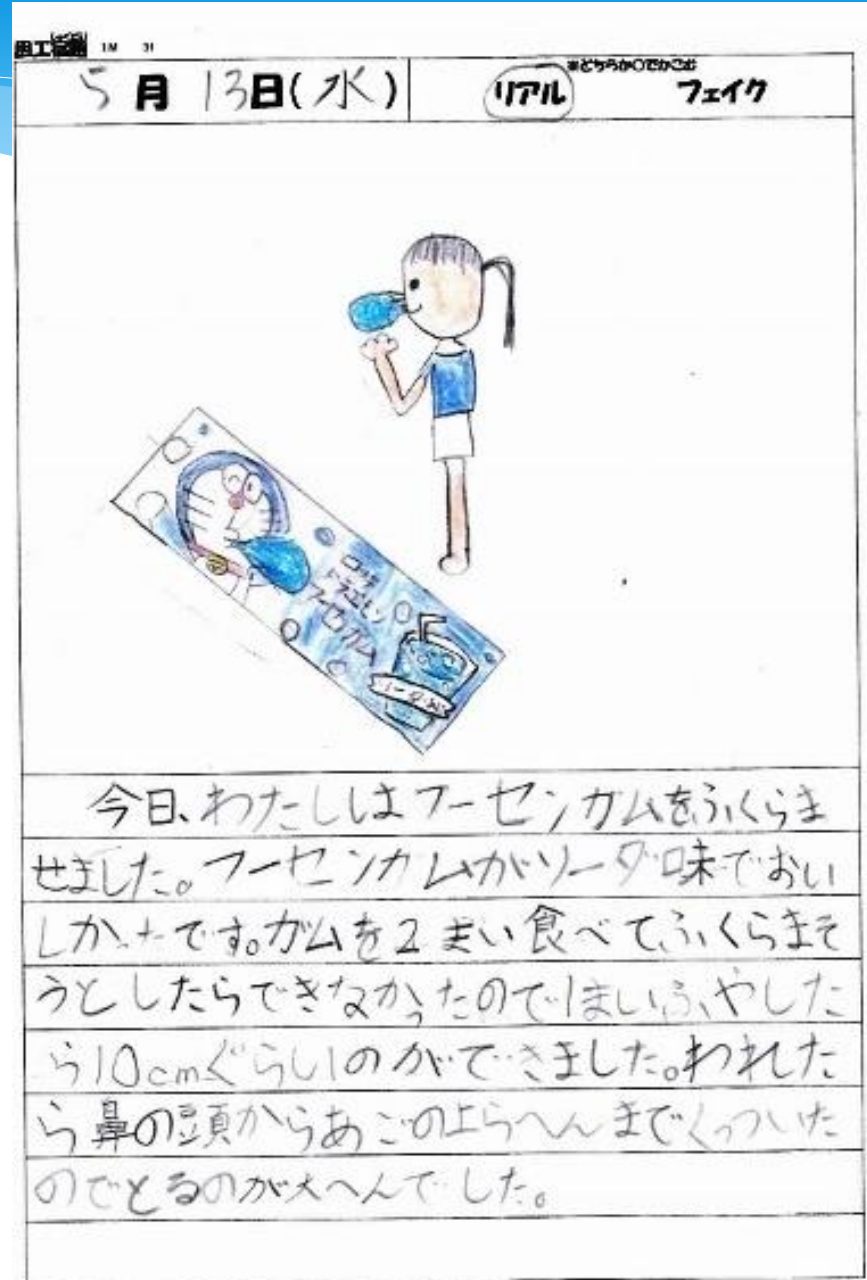 5月13日(水)
※どちらか○でかこむ
リアル フェイク
ロッテ
ドラえもん
フーセンガム
今日、わたしはフーセンガムをふくらま
せました。フーセンガムがソーダ味でおい
しかったです。ガムを2まい食べて、ふくらまそ
うとしたらできなかったので1まいふやした
ら10cmぐらいのができました。われた
ら鼻の頭からあごの上らへんまでくっついた
のでとるのが大へんでした。